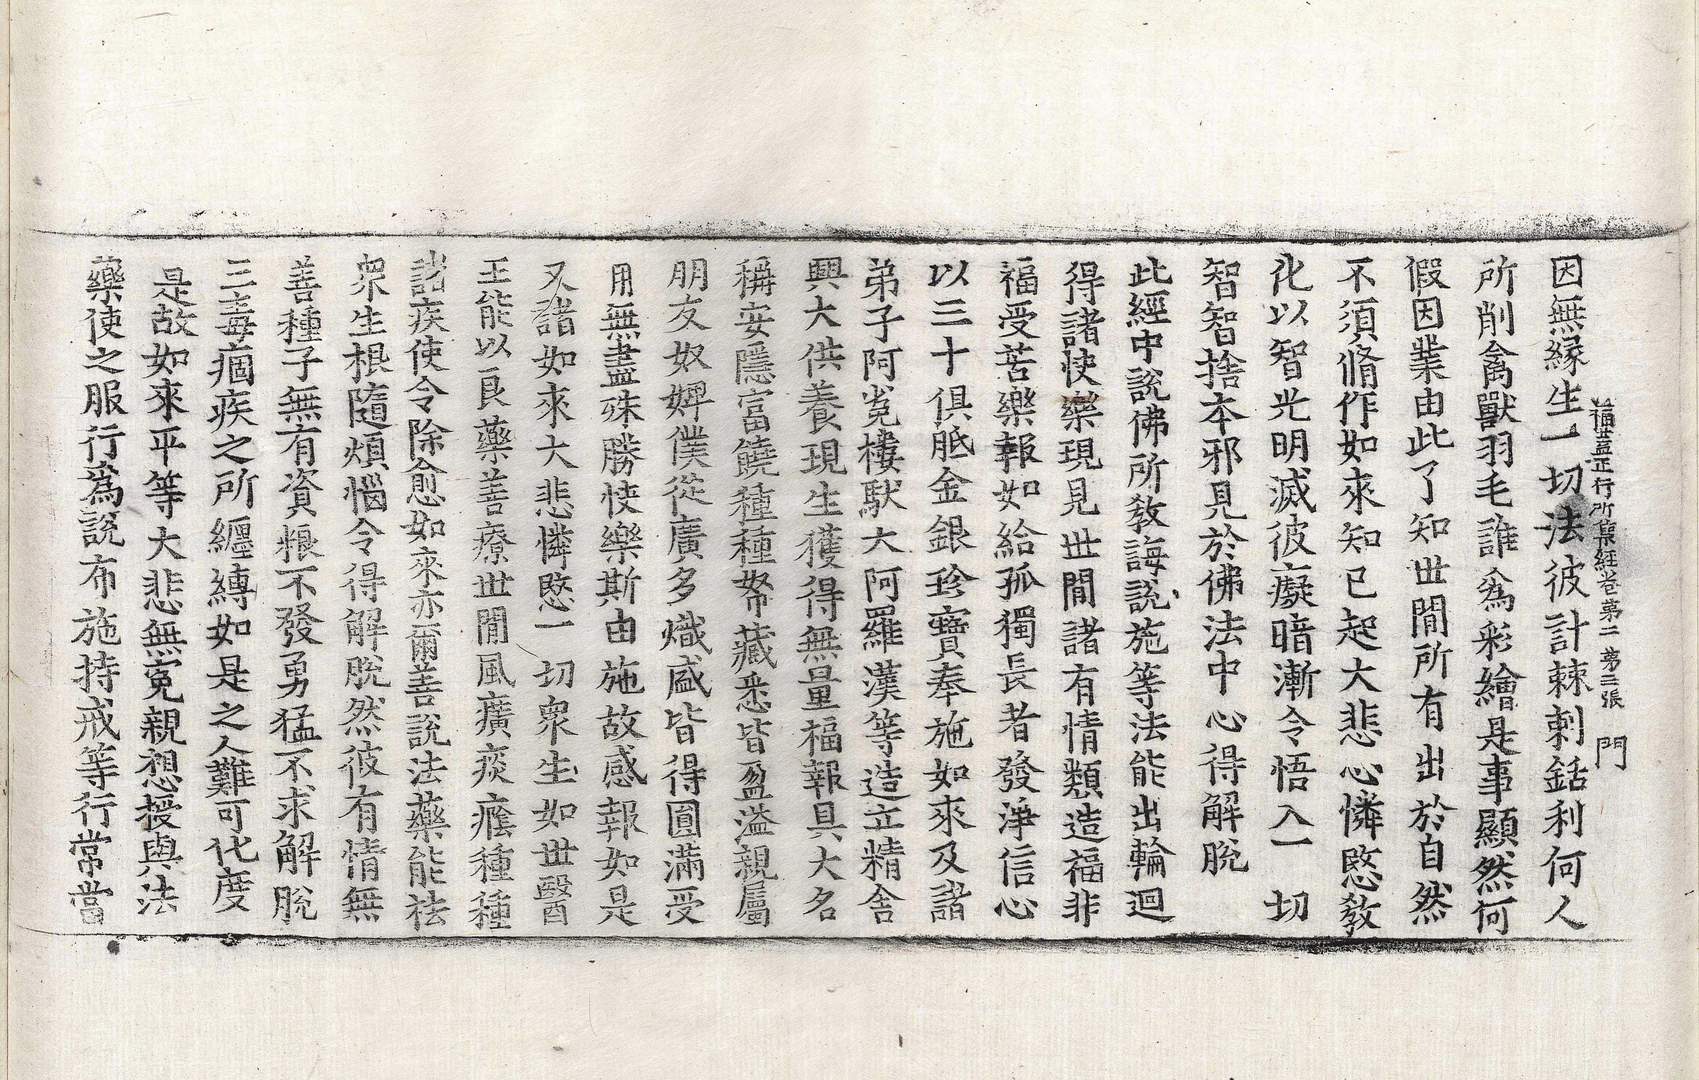 福蓋正行所集經卷第二 第三張 門
因無緣生一切法彼計棘刺銛利何人
所削禽獸羽毛誰為彩繪是事顯然何
假因業由此了知世間所有出於自然
不須脩作如來知已起大悲心憐愍教
化以智光明滅彼癡暗漸令悟入一切
智智捨本邪見於佛法中心得解脫
此經中說佛所教誨說施等法能出輪迴
得諸快樂現見世間諸有情類造福非
福受苦樂報如給孤獨長者發淨信心
以三十俱胝金銀珍寶奉施如來及諸
弟子阿㝹樓馱大阿羅漢等造立精舍
興大供養現生獲得無量福報具大名
稱安隱富饒種種帑藏悉皆盈溢親屬
朋友奴婢僕從廣多熾盛皆得圓滿受
用無盡殊勝快樂斯由施故感報如是
又諸如來大悲憐愍一切眾生如世醫
王能以良藥善療世間風癀痰癊種種
諸疾使令除愈如來亦爾善說法藥能祛
眾生根隨煩惱令得解脫然彼有情無
善種子無有資粮不發勇猛不求解脫
三毒痼疾之所纏縛如是之人難可化度
是故如來平等大悲無冤親想授與法
藥使之服行為說布施持戒等行常當